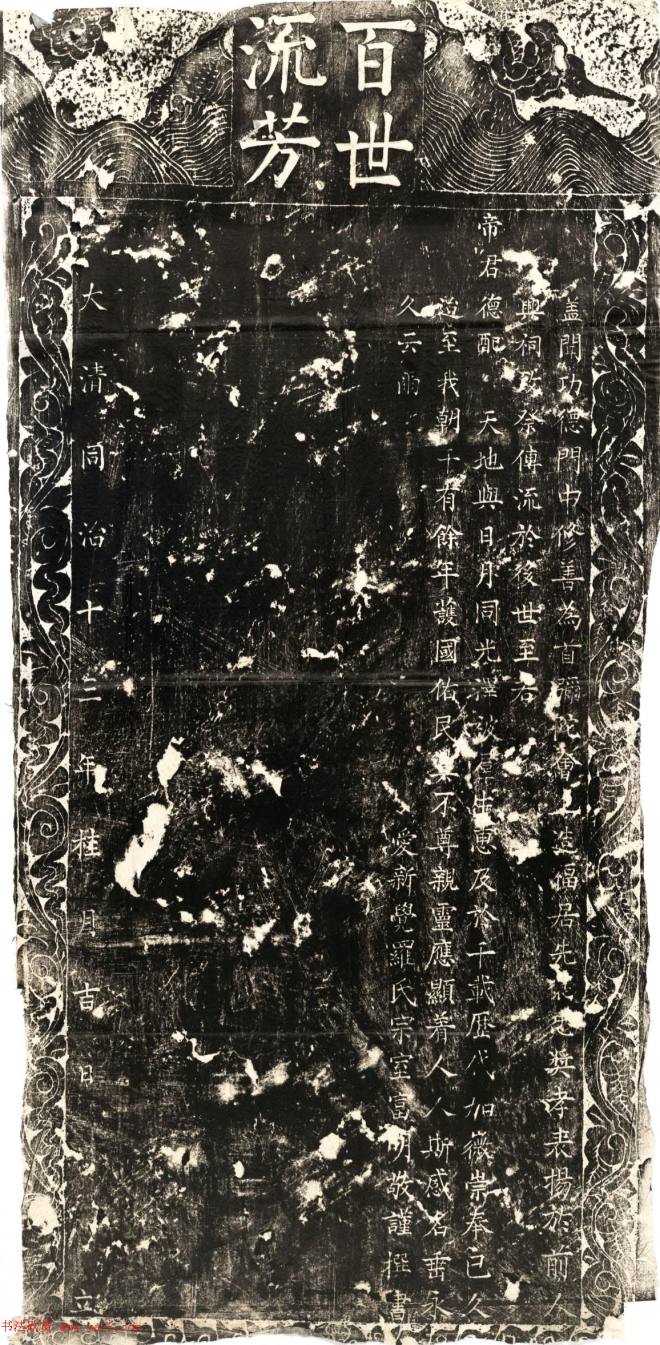 百世
流芳
蓋聞功德門中修善為首 會上造福居先 獎孝表揚於前人
興祠 傳流於後世至若
帝君德配 天地與日月同光澤 惠及於千載歷代加徽崇奉已久
至我朝千有餘年護國佑民 不尊親靈應顯著人人斯感名垂永
久云爾 愛新覺羅氏宗室富明敬謹撰書
大清同治十三年桂月吉日 立
书法欣赏